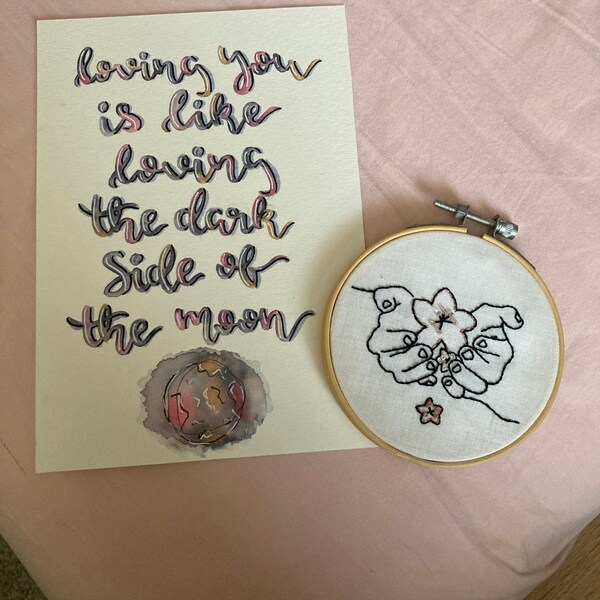 loving you
is like
loving
the dark
side of
the moon